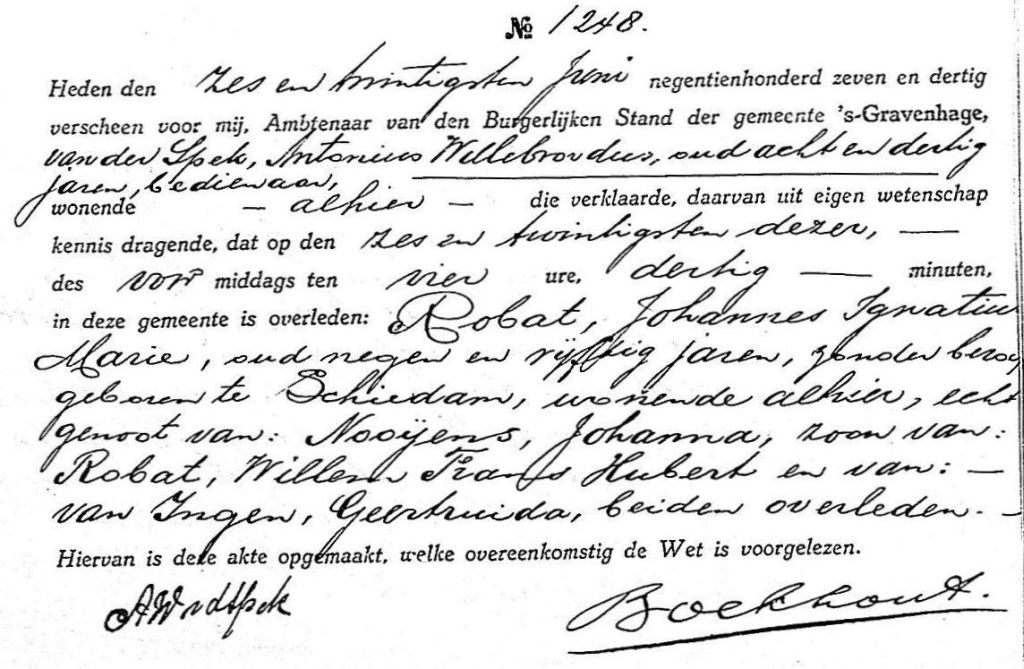 № 1248.
Heden den zes en twintigsten Juni negentienhonderd zeven en dertig
verscheen voor mij, Ambtenaar van den Burgerlijken Stand der gemeente 's-Gravenhage,
van der Spek, Antonius Willebrordus, oud acht en dertig
jaren, bedienaar,
wonende — alhier — die verklaarde, daarvan uit eigen wetenschap
kennis dragende, dat op den zes en twintigsten dezer, —
des voor middags ten vier ure, dertig — minuten,
in deze gemeente is overleden: Robat, Johannes Ignatius
Marie, oud negen en vijftig jaren, zonder beroep
geboren te Schiedam, wonende alhier, echt
genoot van: Nooÿens, Johanna, zoon van:
Robat, Willem Frans Hubert en van: —
van Ingen, Geertruida, beiden overleden. —
Hiervan is deze akte opgemaakt, welke overeenkomstig de Wet is voorgelezen.
AWvdSpek Boekhout.